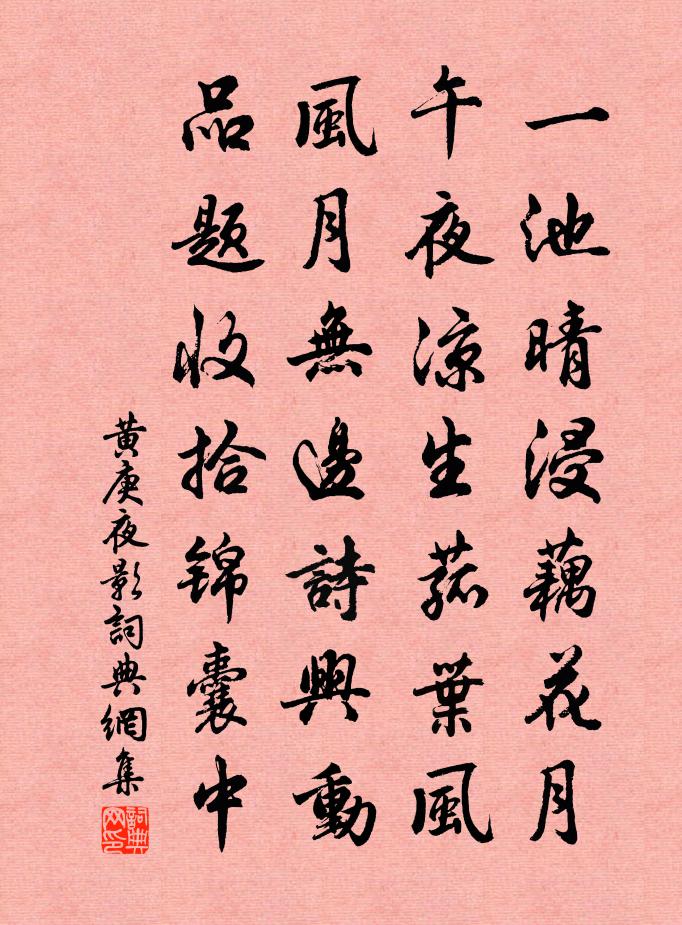 一池晴浸藕花月
午夜凉生菰葉風
風月無邊詩興動
品题收拾锦囊中
黄庚夜影詞典網集
詞典网印